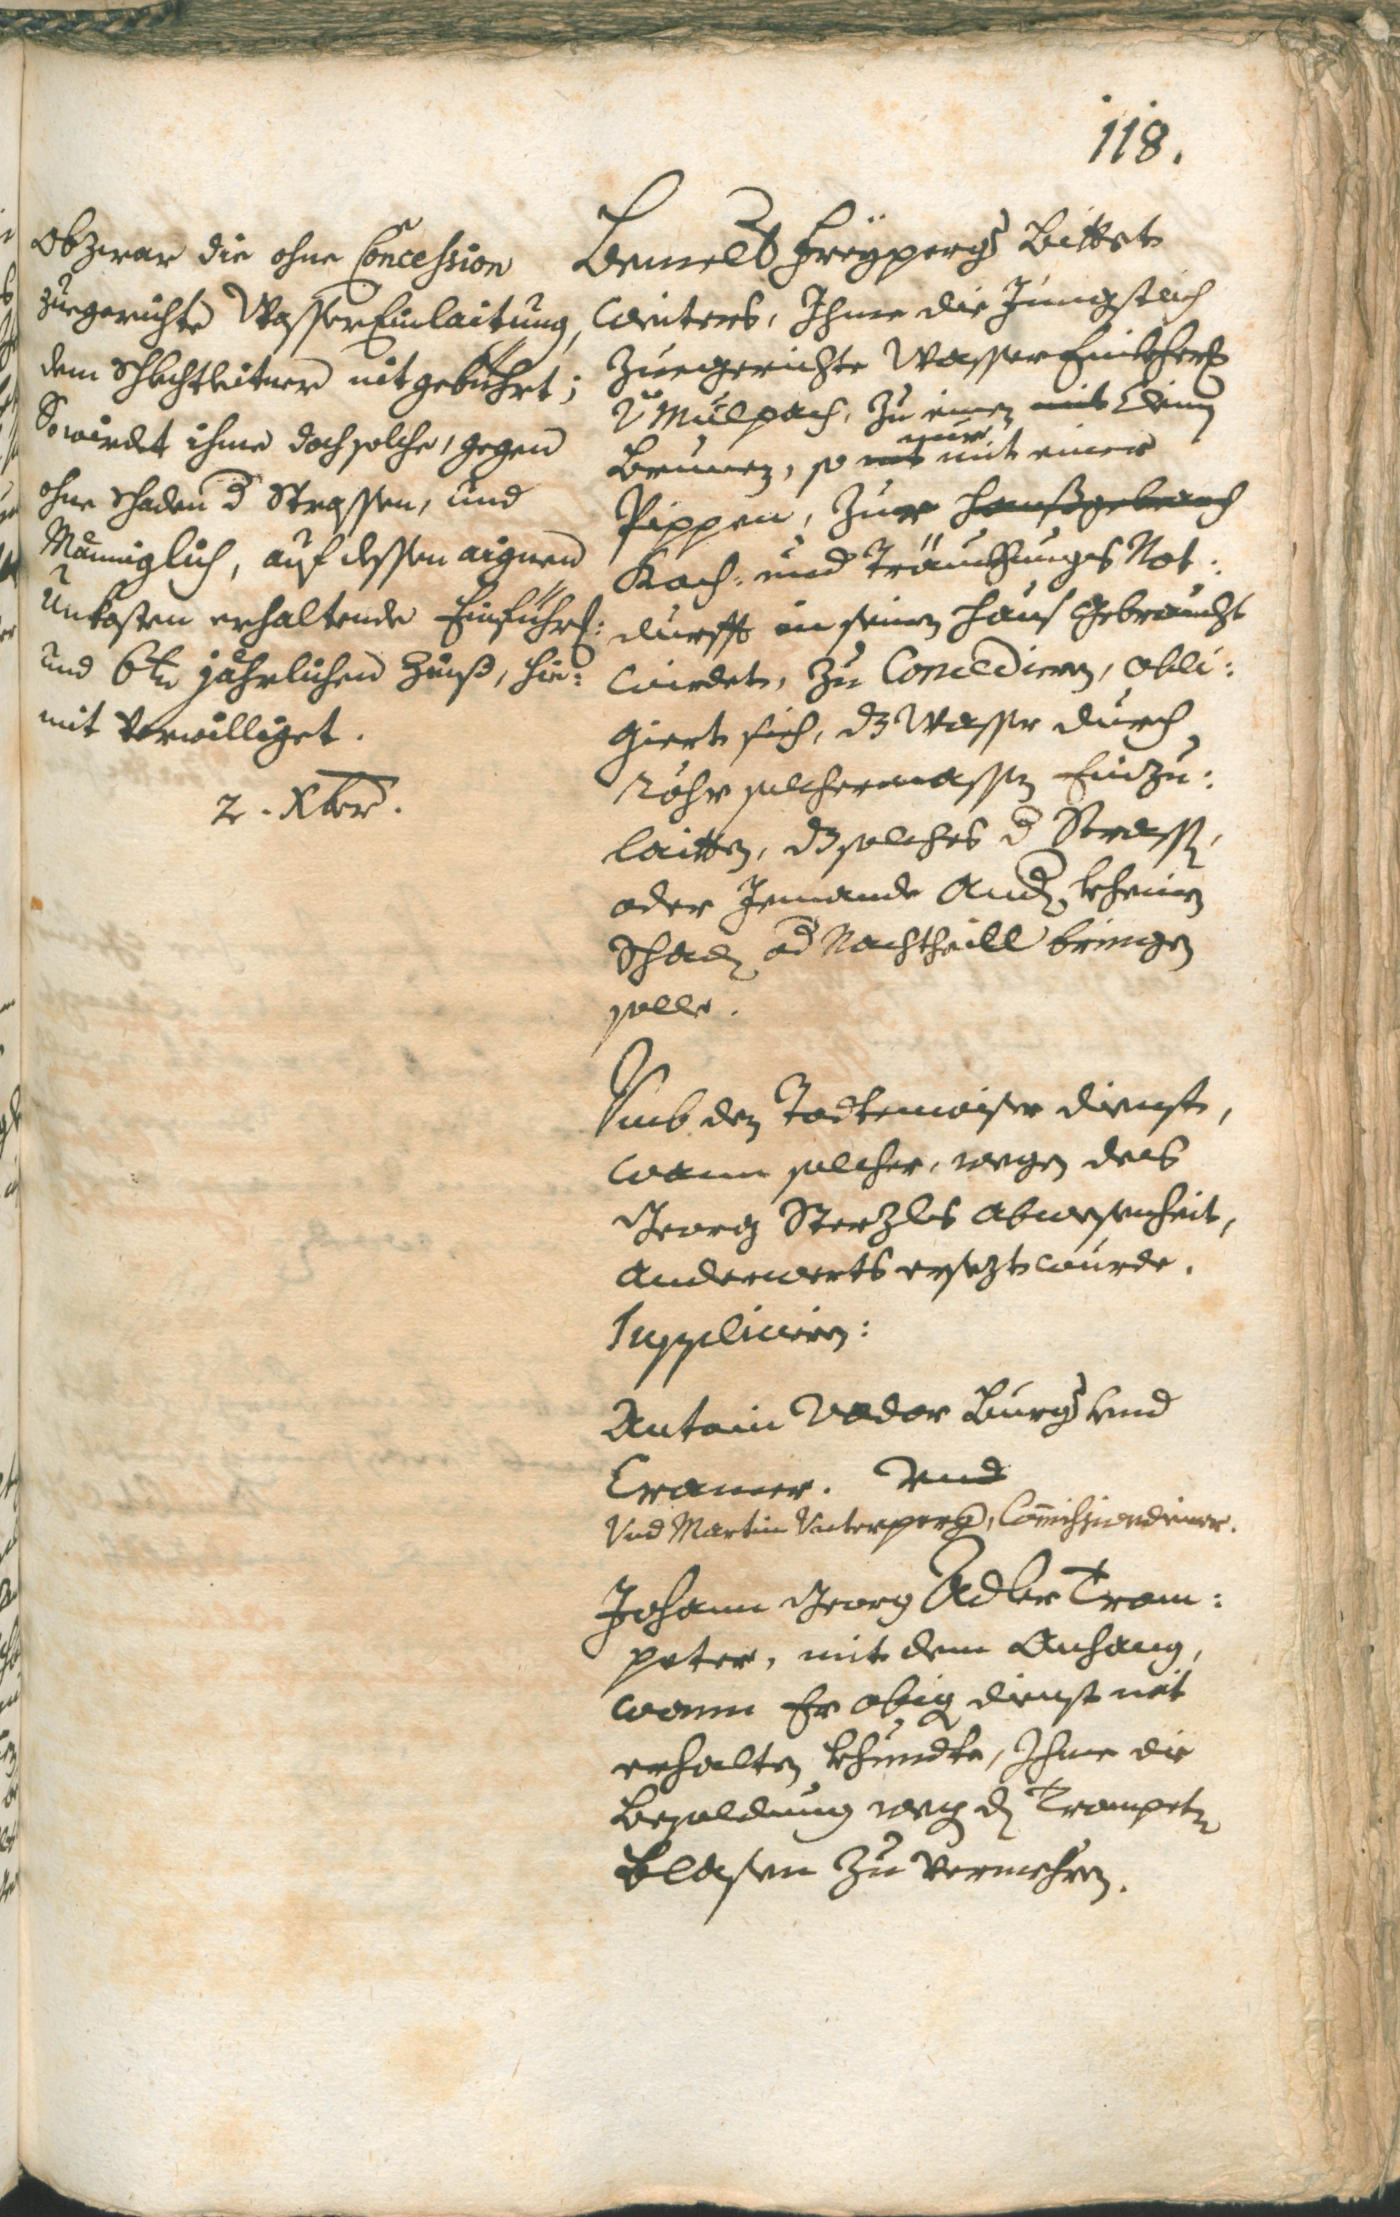 118.
Obzwar die ohne Concession
zuegerichte Wasser Einlaitung,
dem Schlechtleitner nit gebührt;
So wirdet ihme doch solche, gegen
ohne schaden d Strassen, und
Männiglich, auf dessen aignen
Unkosten erhaltende Einführ:
und 6 kr jährlichen Zinß, hie:
mit verwilliget.
2. Xber.
Bemelt Freyperg Bittet
weiters, Ihme die Jüngstlich
zuegerichte Wasser
Mülpach, zu einen mit
Brunen, so nur mit einer
Pippen, zur haußgebrauch
Koch: und Tränkhungs Not:
durfft in seinen hauß Gebraucht
wirdet, zu Concediern, obli:
giert sich, dz Wasser durch
Röhr solchermassen Einzu:
laitten, dz solches d Strass,
oder Jemande And. kheinen
Schad od Nachtheill bringen
solle.
Umb den Todtemaister dienst,
wann solcher, wegen des
Georg Sterzls abwesenheit,
Anderwerts ersezt wurde.
Supplicieren:
Antoni Vador Burg und
Cramer. Vnd
Vnd Martin Unterperg, Commissiondiener.
Johann Georg Adler Trom:
peter, mit dem Anhang,
wann Er obig dienst nit
erhalten khundte, Ihme die
besoldung weg d Trompeten
blasen zu vermehren.